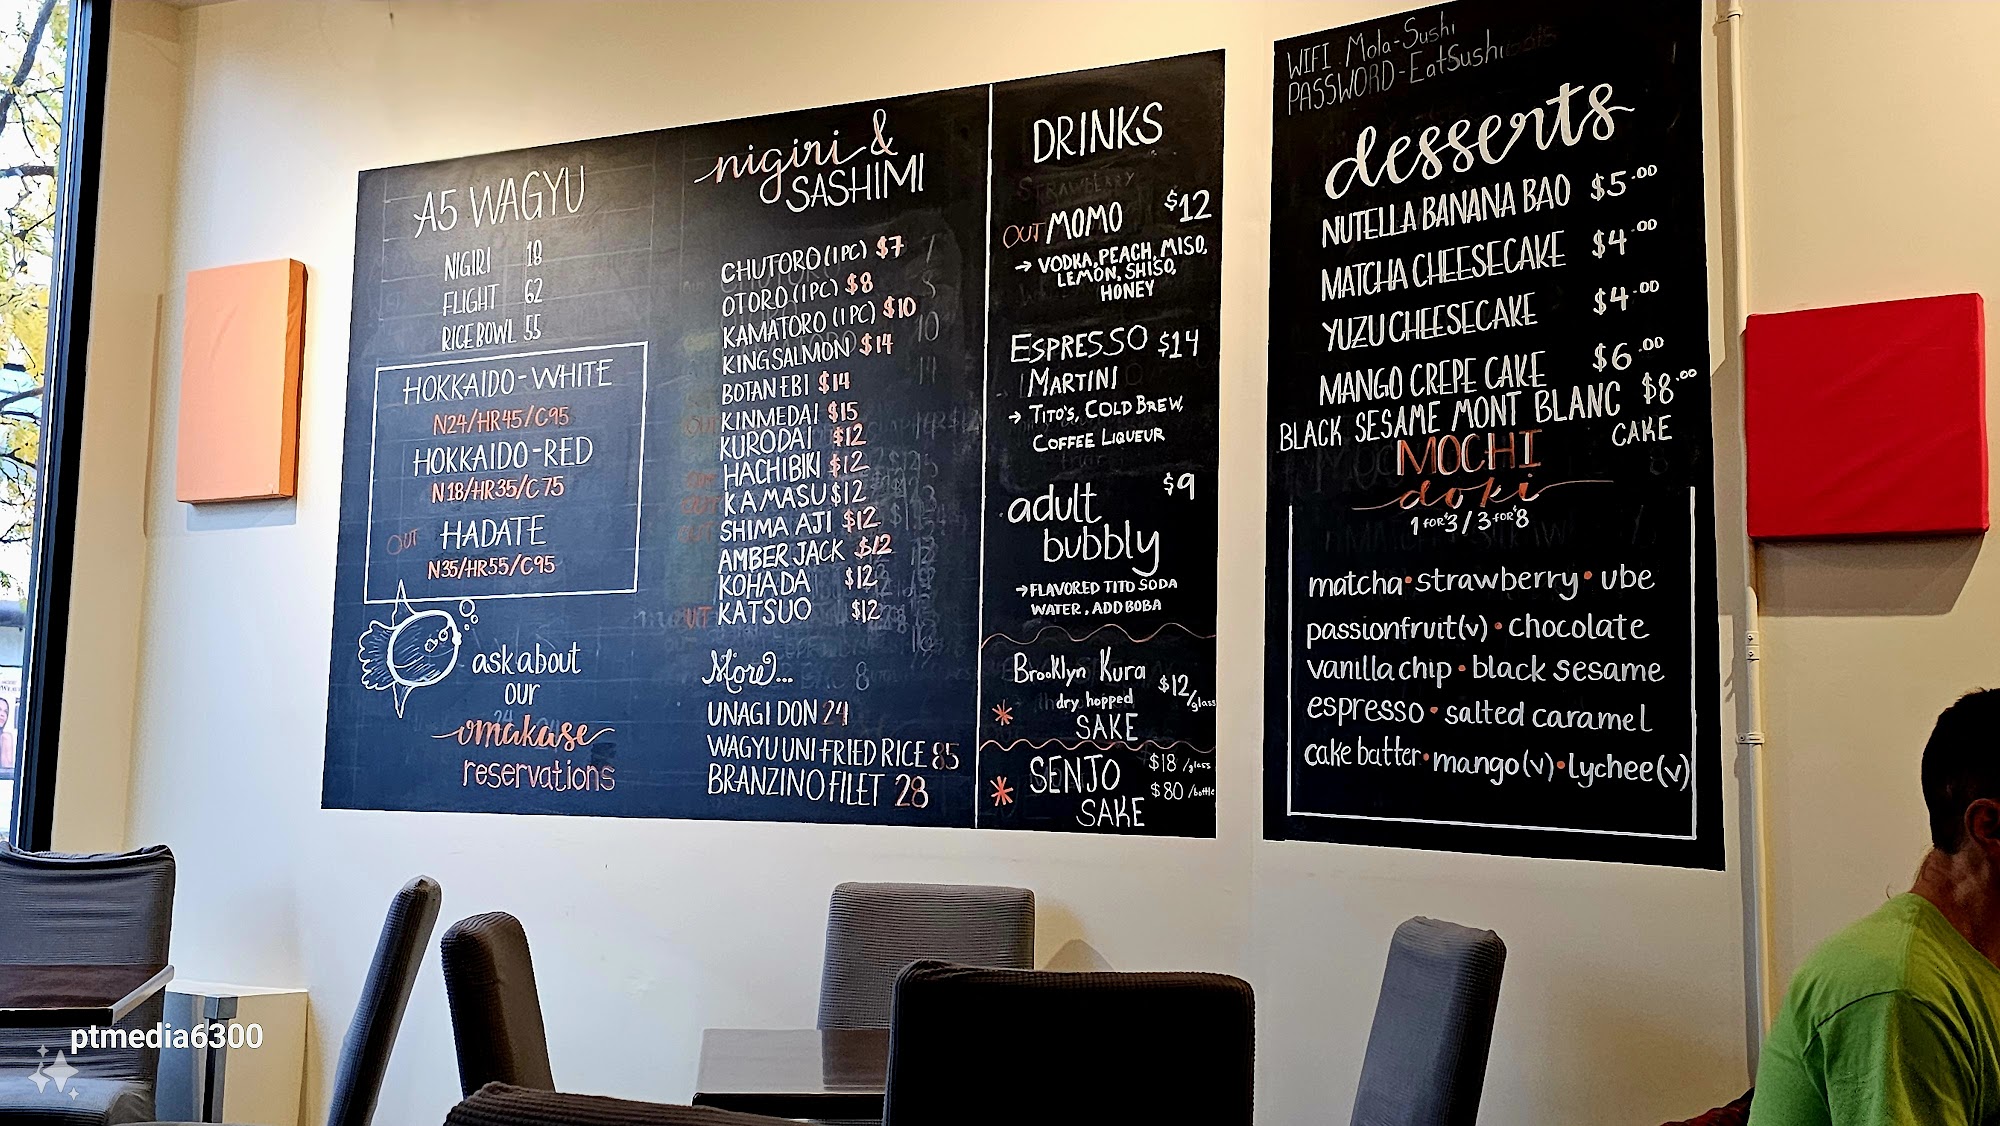 A5 WAGYU
NIGIRI 18
FLIGHT 62
RICE BOWL 55
HOKKAIDO-WHITE
N24/HR45/C95
HOKKAIDO-RED
N18/HR35/C75
OUT HADATE
N35/HR55/C95
ask about
our
omakase
reservations
nigiri &
SASHIMI
CHUTORO (1PC) $7
OTORO (1PC) $8
KAMATORO (1PC) $10
KING SALMON $14
BOTAN EBI $14
OUT KINMEDAI $15
KURODAI $12
OUT HACHIBIKI $12
OUT KAMASU $12
OUT SHIMA AJI $12
AMBER JACK $12
KOHADA $12
OUT KATSUO $12
More...
UNAGI DON 24
WAGYU UNI FRIED RICE 85
BRANZINO FILET 28
DRINKS
STRAWBERRY
OUT MOMO $12
→ VODKA, PEACH, MISO,
LEMON, SHISO,
HONEY
ESPRESSO $14
MARTINI
→ TITO'S, COLD BREW,
COFFEE LIQUEUR
adult $9
bubbly
→ FLAVORED TITO SODA
WATER, ADD BOBA
Brooklyn Kura
dry hopped $12/glass
* SAKE
* SENJO $18/glass
SAKE $80/bottle
WIFI Mola-Sushi
PASSWORD-EatSushi
desserts
NUTELLA BANANA BAO $5.00
MATCHA CHEESECAKE $4.00
YUZU CHEESECAKE $4.00
MANGO CREPE CAKE $6.00
BLACK SESAME MONT BLANC $8.00
CAKE
MOCHI
doki
1 FOR $3 / 3 FOR $8
matcha • strawberry • ube
passionfruit(v) • chocolate
vanilla chip • black sesame
espresso • salted caramel
cake batter • mango(v) • lychee(v)
ptmedia6300